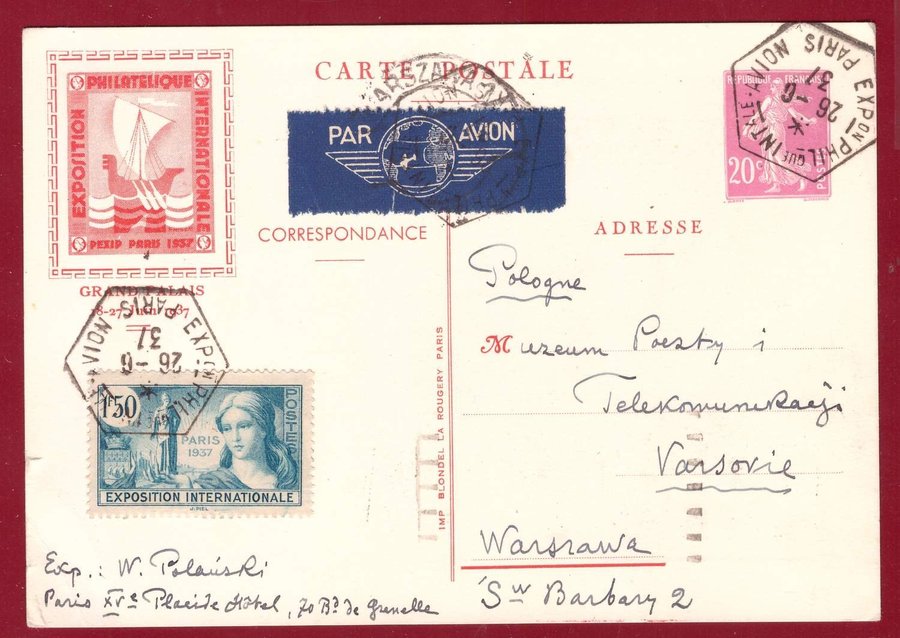 CARTE POSTALE
EXPOSITION
PHILATELIQUE
INTERNATIONALE
PEXIP PARIS 1937
GRAND PALAIS
18-27 Juin 1937
PAR AVION
CORRESPONDANCE
ADRESSE
RÉPUBLIQUE FRANÇAISE
20c
POSTES
EXPON PHILQUE INTLE-AVION
PARIS
26-6
37
EXPON PHILQUE
AVION
PARIS
26-6
37
1F50
POSTES
PARIS
1937
EXPOSITION INTERNATIONALE
J.PIEL
IMP BLONDEL LA ROUGERY PARIS
Pologne
Muzeum Poczty i
Telekomunikacji
Varsovie
Warszawa
Św Barbary 2
Exp.: W. Polański
Paris XVe Placide Hôtel, 70 Bd de Grenelle